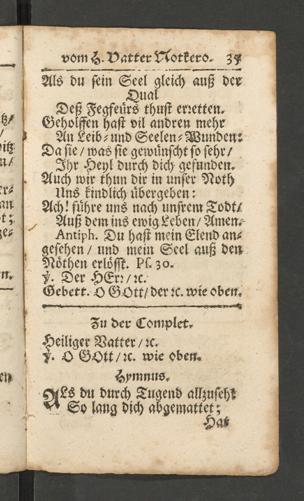 vom H. Vatter Notkero. 35
Als du sein Seel gleich auß der
Qual
Deß Fegfeürs thust erꝛetten.
Geholffen hast vil andren mehr
An Leib- und Seelen-Wunden:
Da sie / was sie gewünscht so sehr /
Ihr Heyl durch dich gefunden.
Auch wir thun dir in unser Noth
Uns kindlich übergeben:
Ach! führe uns nach unsrem Todt /
Auß dem ins ewig Leben / Amen.
Antiph. Du hast mein Elend an-
gesehen / und mein Seel auß den
Nöthen erlößt. Ps. 30.
℣. Der HErꝛ / ꝛc.
Gebett. O GOtt / der ꝛc. wie oben.
Zu der Complet.
Heiliger Vatter / ꝛc.
℣. O GOtt / ꝛc. wie oben.
Hymnus.
ALs du durch Tugend allzusehr
So lang dich abgemattet;
Hat